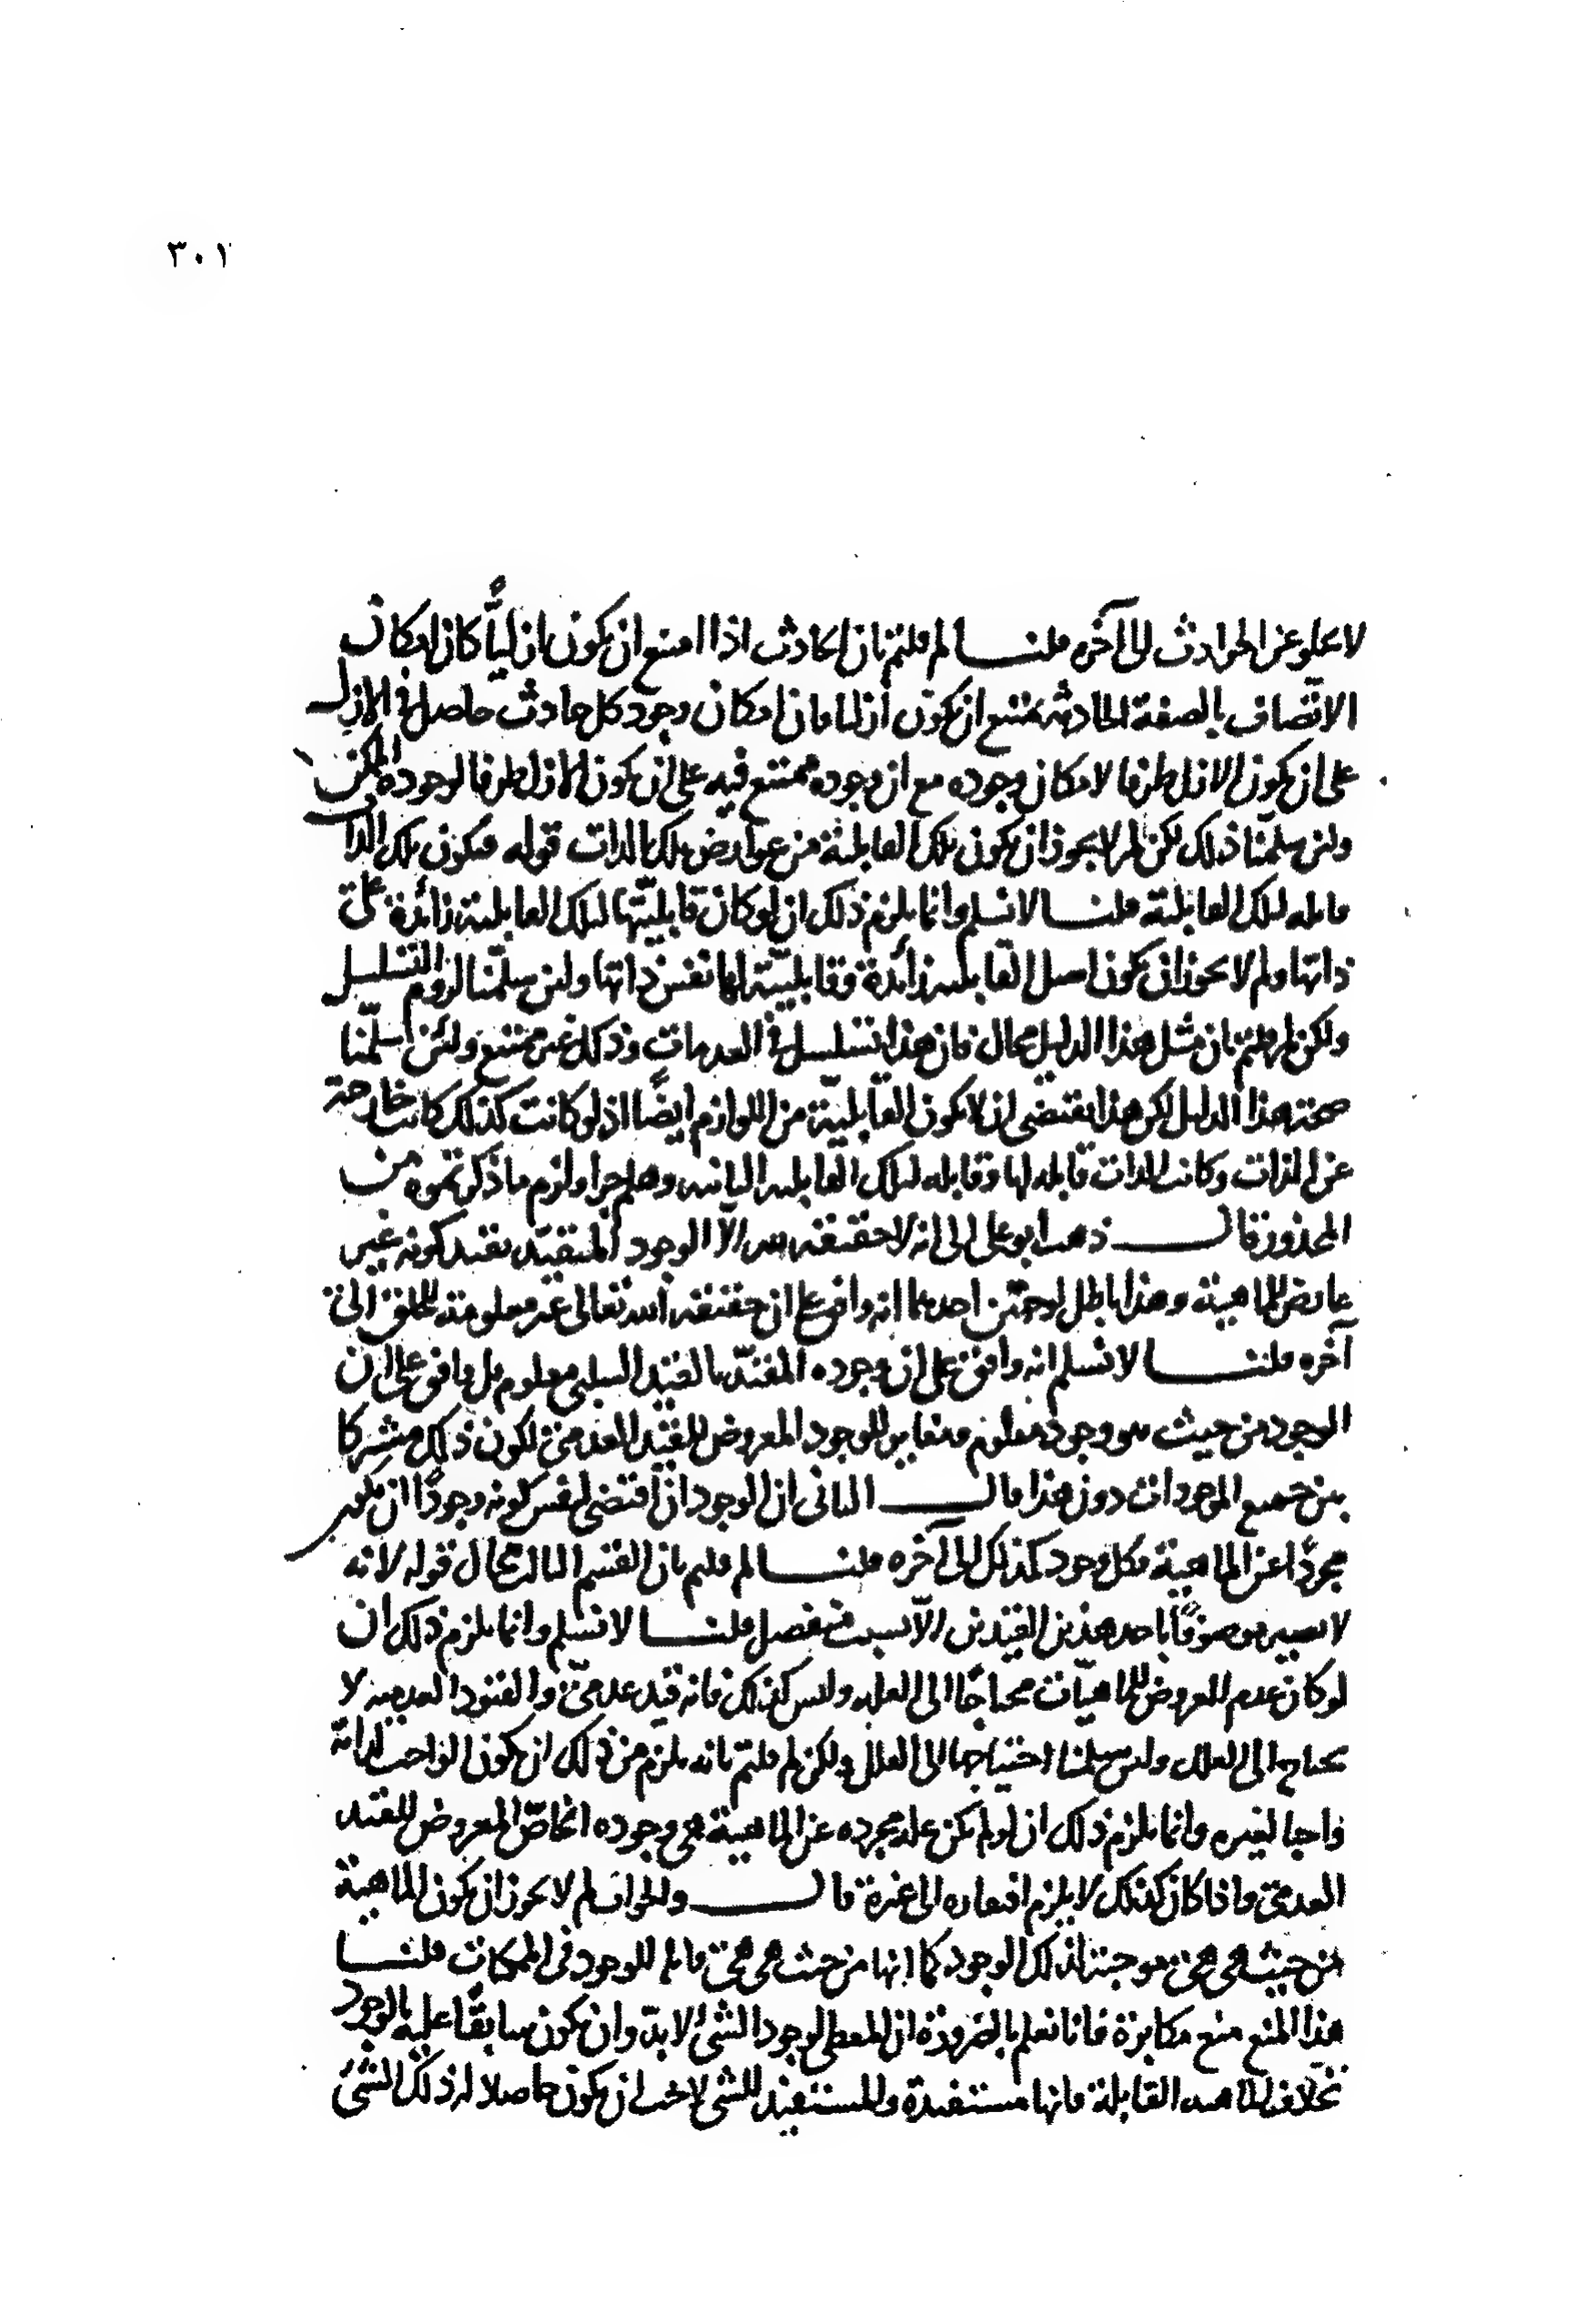 ٣٠١
لا يخلو عن الحوادث الى آخره قلنا لم قلتم بان الحادث اذا امتنع ان يكون ازليًّا كان امكان
الاتصاف بالصفة الحادثة يمتنع ان يكون ازليا فان امكان وجود كل حادث حاصل في الازل
على ان يكون الازل ظرفا لامكان وجوده مع ان وجوده ممتنع فيه على ان يكون الازل ظرفا لوجوده الممكن
ولئن سلمنا ذلك لكن لم لا يجوز ان يكون تلك القابلية من عوارض تلك الذات قوله فيكون تلك الذات
قابله لتلك القابلية قلنا لا نسلم وانما يلزم ذلك ان لو كان قابليتها لتلك القابلية زائدة على
ذاتها ولم لا يجوز ان يكون اصل القابليه زائدة وقابليته لها نفس ذاتها ولئن سلّمنا لزوم التسلسل
ولكن لم قلتم بان مثل هذا الدليل محال فان هذا تسلسل في العدمات وذلك غير ممتنع ولئن سلّمنا
صحته هذا الدليل لكن هذا يقتضى ان لا يكون القابليّة من اللوازم ايضًا اذ لو كانت كذلك كانت خارجة
عن الذات وكانت الذات قابله لها وقابله لتلك القابليه الثانيه وهلم جرا ولزم ما ذكرتموه من
المحذور قال ذهب ابو علي الى انه لا حقيقه لله الّا الوجود المتقيّد بقيد كونه غير
عارض للماهية وهذا باطل لوجهين احدهما انه وافق على ان حقيقه الله تعالى غير معلومة للخلق الى
آخره قلنا لا نسلم انه وافق على ان وجوده المقيّد بالقيد السلبي معلوم بل وافق على ان
الوجود من حيث هو وجود معلوم ومغاير للوجود المعروض للقيد العدمى لكون ذلك مشتركا
بين جميع الموجودات دون هذا قال الثاني ان الوجود ان اقتضى لنفس كونه وجودًا ان يكون
مجردًا عن الماهية فكل وجود كذلك الى آخره قلنا لم قلتم بان القسم الثالث محال قوله لانه
لا يصير موصوفًا باحد هذين القيدين الّا بسبب منفصل قلنا لا نسلم وانما يلزم ذلك ان
لو كان عدم العروض للماهيّات محتاجًا الى العله وليس كذلك فانه قيد عدمىّ والقيود العدميه لا
يحتاج الى العلل ولئن سلمنا احتياجها الى العلل ولكن لم قلتم بانه يلزم من ذلك ان يكون الواجب لذاته
واجبا لغيره وانما يلزم ذلك ان لو لم يكن علة تجرده عن الماهية هى وجوده الخاصّ المعروض للقيد
العدمىّ واذا كان كذلك لا يلزم افتقاره الى غيره قال والجواب لم لا يجوز ان يكون الماهية
من حيث هى هى موجبة لذلك الوجود كما انها من حيث هى هى قابلة للوجود فى الممكنات قلنا
هذا المنع منع مكابرة فانا نعلم بالضرورة ان المعطى لوجود الشئ لا بدّ وان يكون سابقًا عليه بالوجود
بخلاف الماهيه القابلة فانها مستفيدة والمستفيد للشى لا يجب ان يكون حاصلا له ذلك الشئ